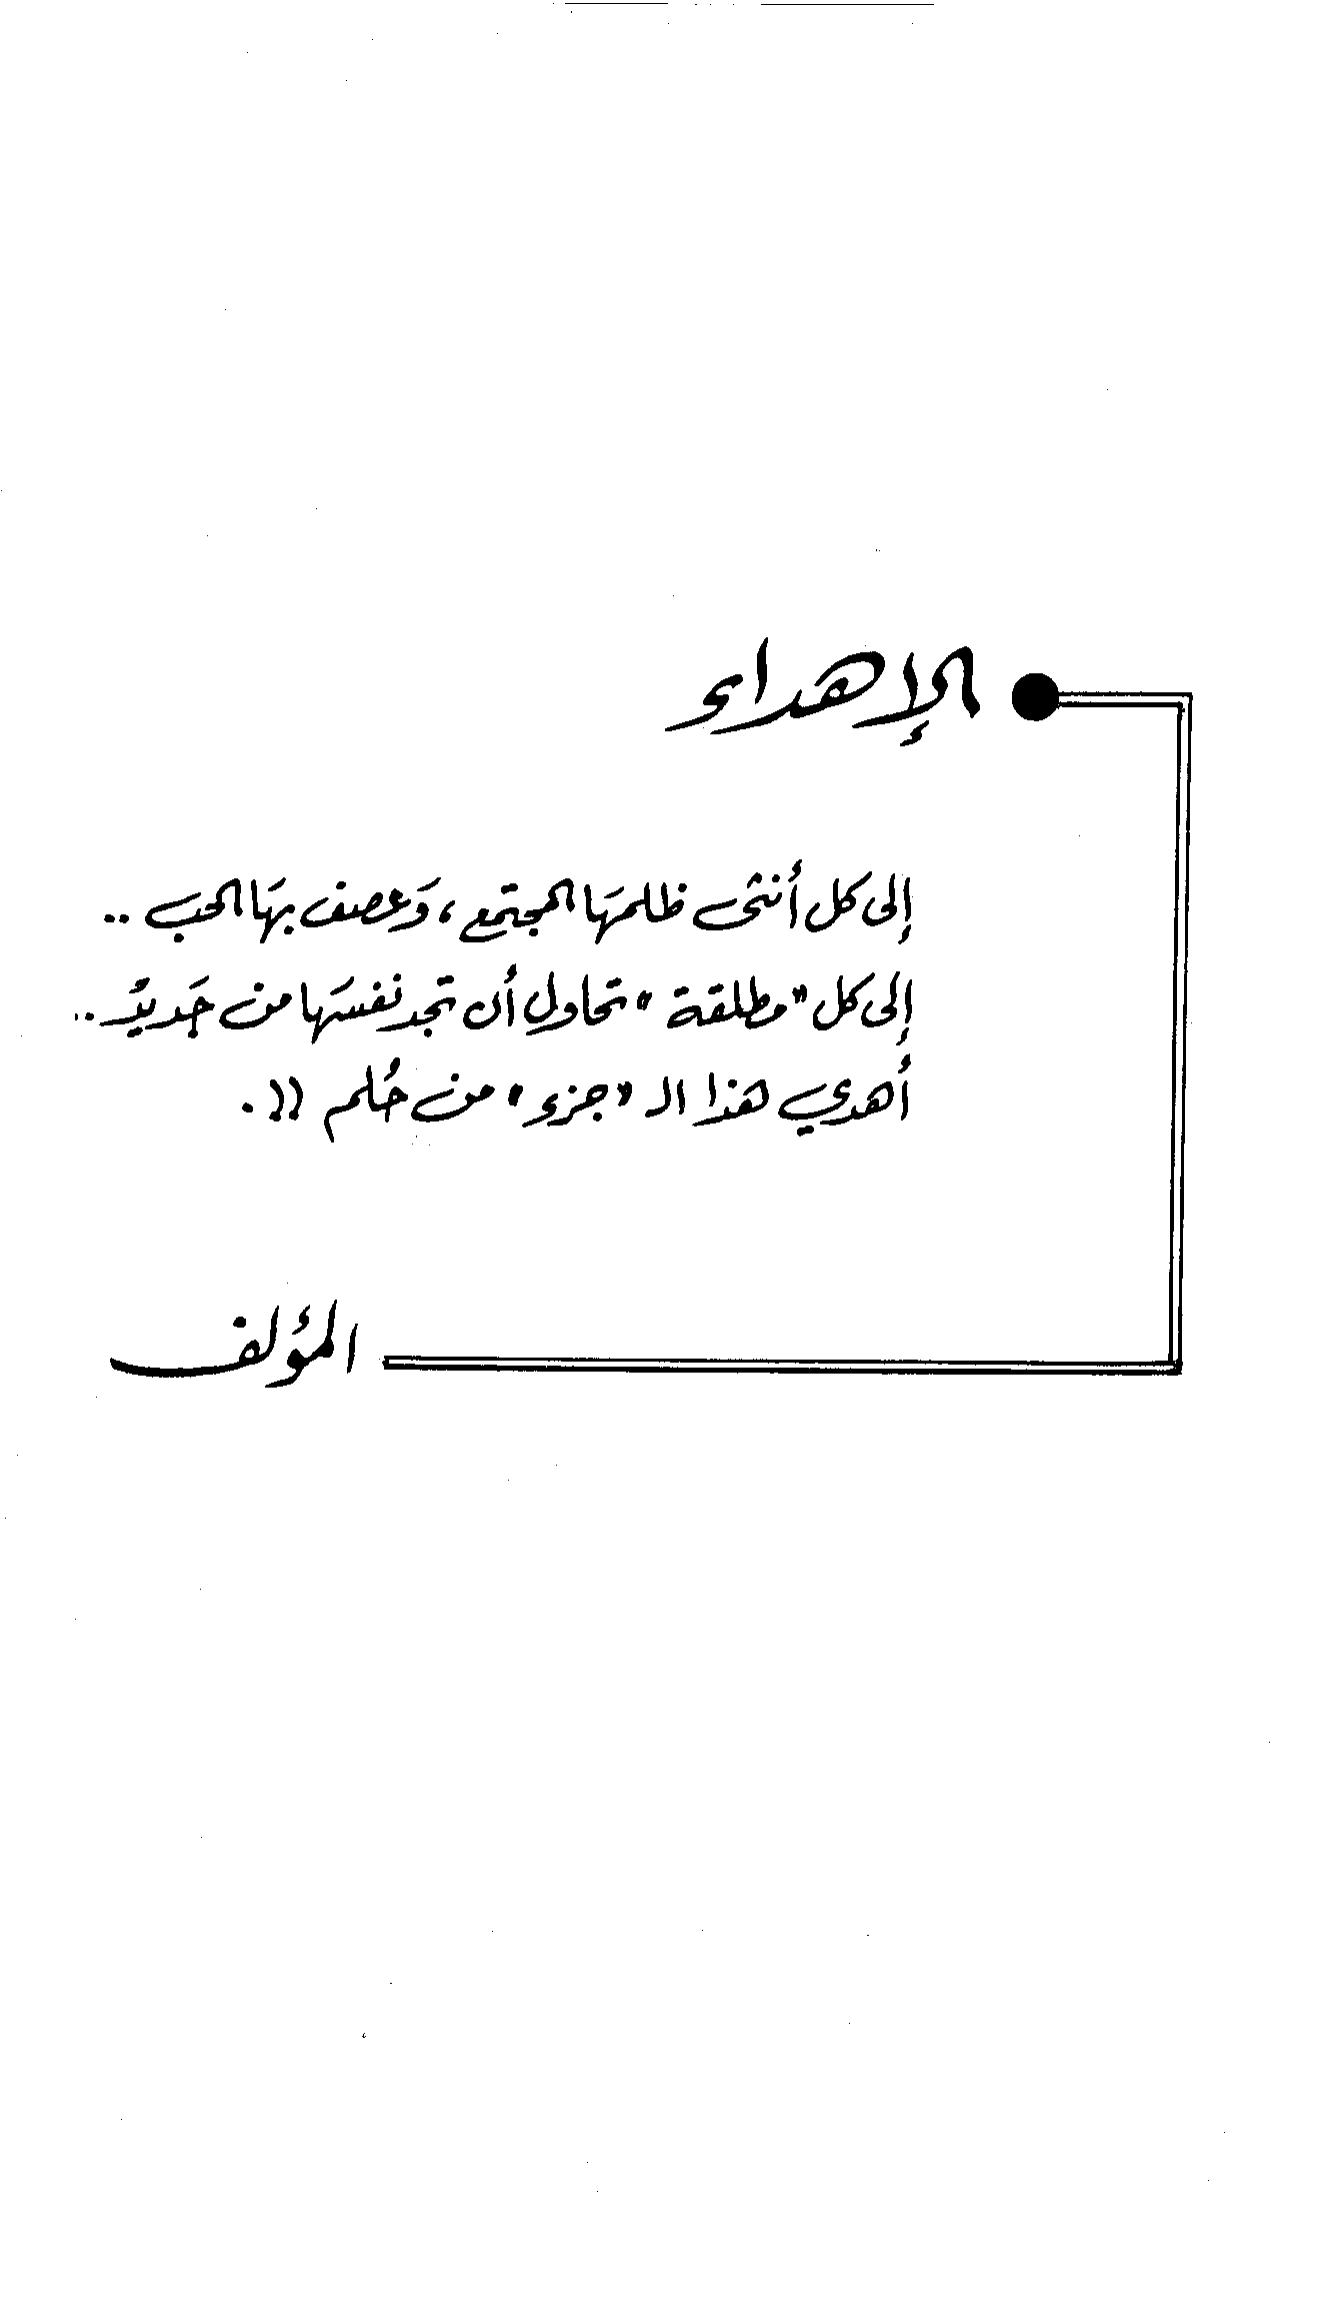 الإهداء
إلى كل أنثى ظلمهَا المجتمع، وَعصف بهَا الحب ..
إلى كل "مطلقة" تحاول أن تجد نفسهَا من جَديدُ ..
أُهدي هذا الـ "جزء" من حُلم ((.
المؤلف